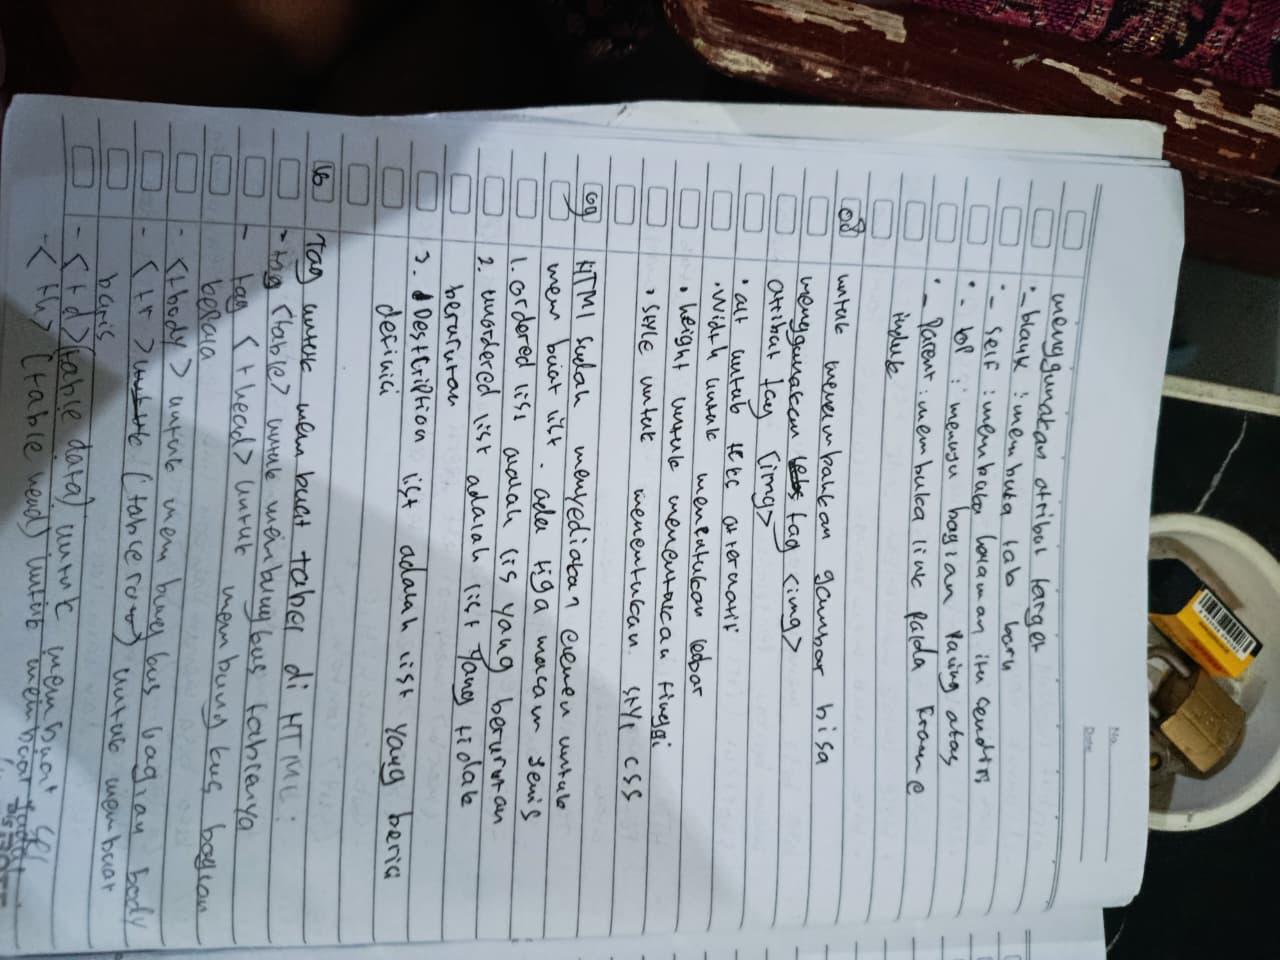 No.
Date
menggunakan atribut target
• _ blank : membuka tab baru
• _ self : membuka halaman itu sendiri
• _ top : menuju bagian paling atas
• _ Parent : membuka link pada Frame
induk
08 untuk menembahkan gambar bisa
menggunakan tag <img>
atribut tag <img>
• alt untuk teks alternatif
• width untuk menentukan lebar
• height untuk menentukan tinggi
• style untuk menentukan style CSS
09 HTMl sudah menyediakan elemen untuk
mem buat list. ada tiga macam jenis
1. ordered list adalah lis yang berurutan
2. unordered list adalah list yang tidak
berurutan
3. Description list adalah list yang berisi
definisi
10 Tag untuk mem buat tabel di HTML :
- <table> untuk membungkus tabelnya
- tag <thead> untuk membungkus bagian
kepala
- <tbody> untuk mem bung kus bagian body
- <tr> (table row) untuk membuat
baris
- <td> (table data) untuk membuat sel
- <th> (table head) untuk membuat judul